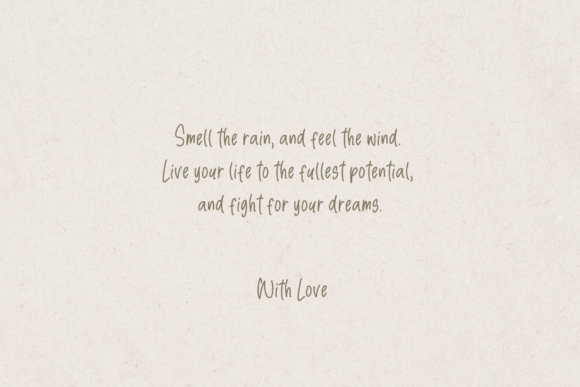 Smell the rain, and feel the wind.
Live your life to the fullest potential,
and fight for your dreams.
With Love